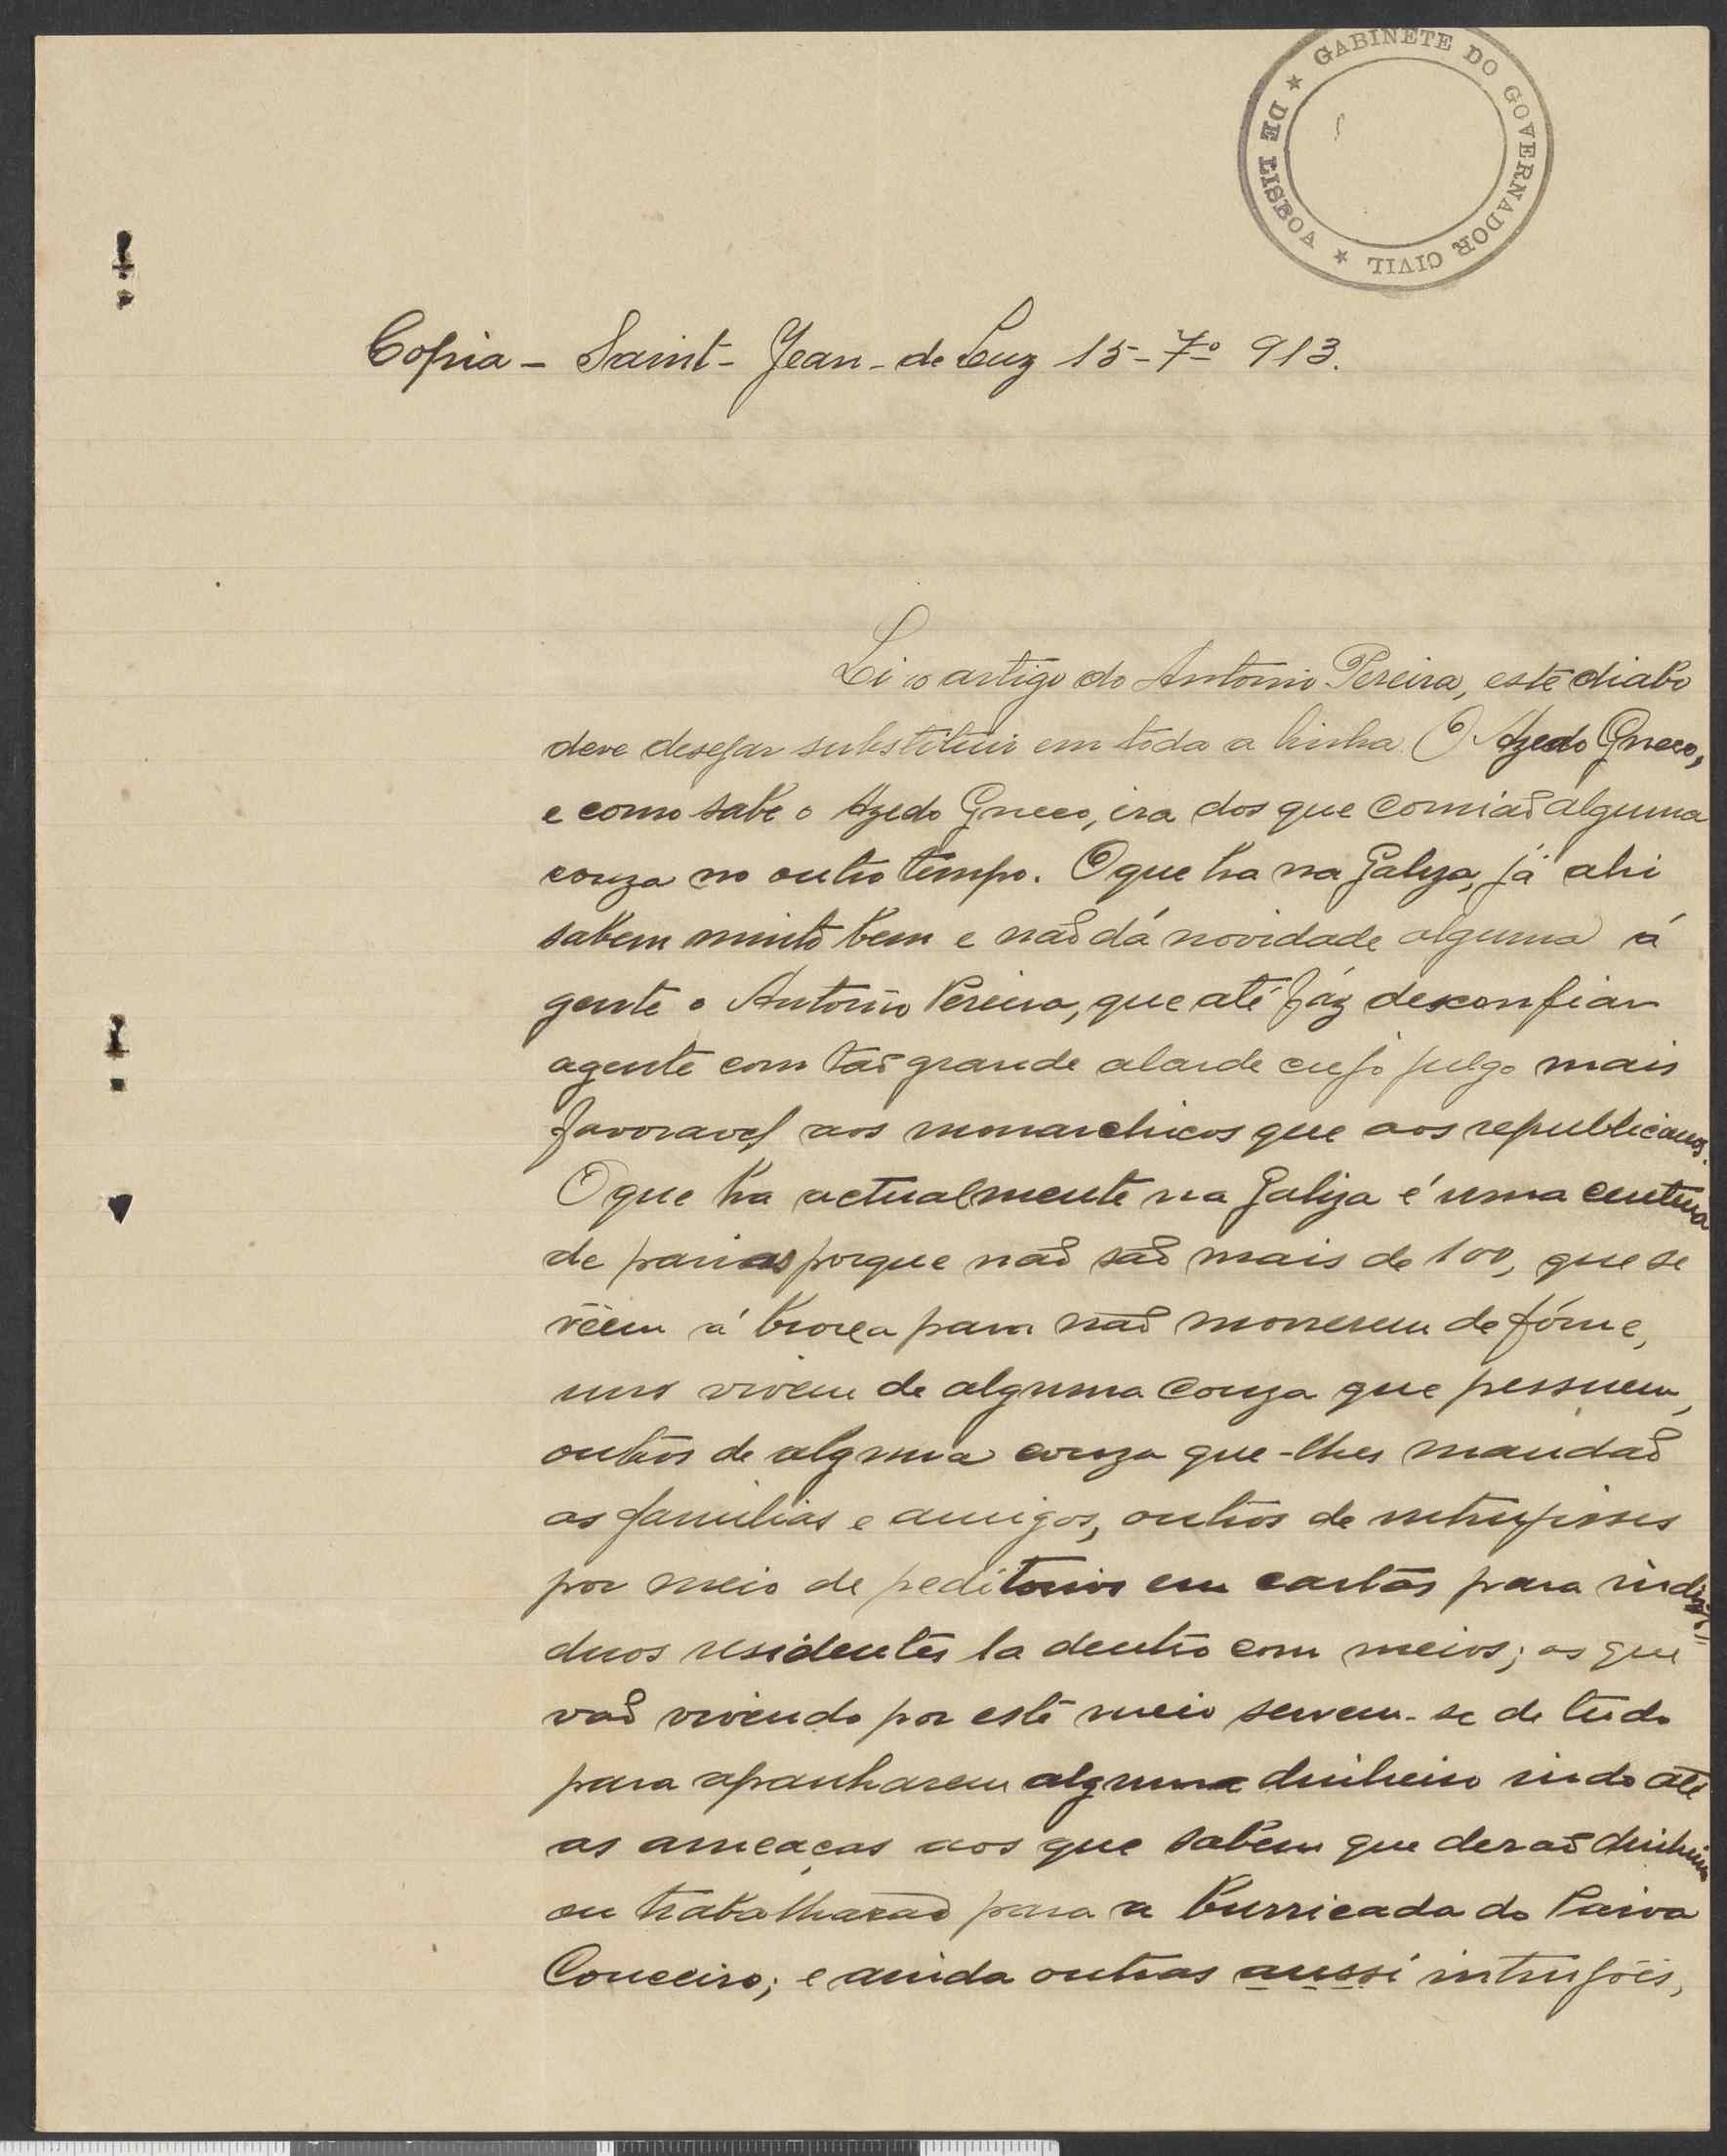 ★ GABINETE DO GOVERNADOR CIVIL ★ DE LISBOA
Copia - Saint-Jean-de Luz 15-7º 913.
Li o artigo do Antonio Pereira, este diabo
deve desejar substituir em toda a linha O Azedo Gneco,
e como sabe o Azedo Gneco, era dos que comiaõ alguma
couza no outro tempo. O que ha na Galiza, já ahi
sabem muito bem e naõ dá novidade alguma á
gente o Antonio Pereira, que até fáz desconfiar
agente com taõ grande alarde cujo julgo mais
favoravel aos monarchicos que aos republicanos.
O que ha actualmente na Galiza é uma centena
de parias porque naõ saõ mais de 100, que se
vêem á broca para naõ morrerem de fóme,
uns vivem de alguma couza que pessuem,
outros de alguma couza que-lhes mandaõ
as familias e amigos, outros de intrujisses
por meio de peditorios em cartas para indivi=
duos residentes la dentro com meios; os que
vaõ vivendo por este meio servem-se de tudo
para apanharem algum dinheiro indo até
as ameaças aos que sabem que deraõ dinheiro
ou trabalharaõ para a burricada do Paiva
Couceiro; e ainda outras aussi intrujões,